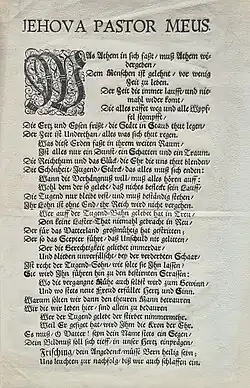 JEHOVA PASTOR MEUS.
WAs Athem in sich faßt/ muß Athem wi-
dergeben/
Dem Menschen ist gelehnt/ vor wenig
Zeit zu leben.
Der Zeit die immer laufft/ und nie-
mahl wider komt/
Die alles raffet weg und alle
Die Ertz und Eysen frißt/ die Stätte in Staub thut legen/
Der Zeit ist Underthan/ alles was sich thut regen.
Was diese Erden faßt in ihrem weiten Raum/
Ist alles nur ein Dunst/ ein Schatten und ein Traum.
Die Reichthum und das Glück/ die Ehr die uns thut blenden/
Die Schönheit/ Jugend/ Stärck/ das alles muß sich enden:
Wann die Verhängnuß will/ muß alles hören auff:
Wohl dem der so gelebt/ daß nichts befleckt sein Lauff/
Die Tugend nur bleibt vest/ und muß beständig stehen/
Ihr Lohn ist ohne End/ ihr Reich wird nicht vergehen.
Wer auff der Tugend-Bahn gelebet hat in Treu/
Den keine Laster-That niemahl gebracht in Reu/
Der für das Vatterland großmühtig hat gestritten/
Der so das Scepter führt/ daß Unschuld nit gelitten/
Der die Gerechtigkeit geliebet immerdar/
Und blieben unverfälscht/ bey der verderbten Schaar/
Ist recht der Tugend-Sohn/ wie solte sie Ihn lassen?
Sie wird Ihn führen hin zu den bestirnten Strassen:
Wo die vergangne Mühe auch selbst wird zum Gewinn/
Und wo stets neue Freud erfüllet Hertz und Sinn.
Warum solten wir dann den theuren Mann betauren
Wir die wir leben hier/ sind allein zu betauren
Wer der Tugend gelebt der stirbet nimmermehr.
Weil Sie gesetzt hat/ wird Ihm die Kron der Ehr.
Es muß/ O Vatter! seyn dein Name stets im Segen/
Dein Bildnuß soll sich tieff/ in unser Hertz einprägen/
Frisching/ dein Angedenck müsse Bern heilig seyn;
Uns leuchten zur Nachfolg/ biß wir auch schlaffen ein.